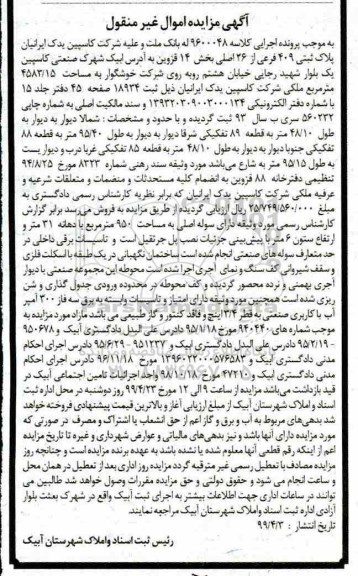 آگهی مزایده اموال غیر منقول
به موجب پرونده اجرایی کلاسه ۹۶۰۰۰۴۸ له بانک ملت و علیه شرکت کاسپین یدک ایرانیان
پلاک ثبتی ۴۰۹ فرعی از ۲۶ اصلی بخش ۱۴ قزوین به آدرس آبیک شهرک صنعتی کاسپین
یک بلوار شهید رجایی خیابان هشتم روبه روی شرکت خوشگوار به مساحت ۴۵۸۳/۱۵
مترمربع ملکی شرکت کاسپین یدک ایرانیان ذیل ثبت ۱۸۹۳۴ صفحه ۴۵ دفتر جلد ۱۵
با شماره دفتر الکترونیکی ۱۳۹۳۲۰۳۰۹۰۰۲۰۰۰۱۳۴ و سند مالکیت اصلی به شماره چاپی
۵۶۰۲۳۲ سری ب سال ۹۳ ثبت گردیده و با حدود و مشخصات : شمالا دیوار به دیوار به
طول ۴۸/۱۰ متر به قطعه ۸۹ تفکیکی شرقا دیوار به دیوار به طول ۹۵/۴۰ متر به قطعه ۸۸
تفکیکی جنوبا دیوار به دیوار به طول ۴۸/۱۰ متر به قطعه ۸۵ تفکیکی غربا درب و دیواریست
به طول ۹۵/۱۵ متر به شارع می‌باشد مورد وثیقه سند رهنی شماره ۸۳۲۳ مورخ ۹۴/۸/۲۵
تنظیمی دفترخانه ۸۸ قزوین به انضمام کلیه مستحدثات و منضمات و متعلقات شرعیه و
عرفیه ملکی شرکت کاسپین یدک ایرانیان که برابر نظریه کارشناس رسمی دادگستری به
مبلغ ۲۵/۷۴۹/۵۶۰/۰۰۰ ریال ارزیابی گردیده از طریق مزایده به فروش می‌رسد برابر گزارش
کارشناس رسمی مورد وثیقه دارای سوله اصلی به مساحت ۹۵۰ مترمربع با دهانه ۳۱ متر و
ارتفاع ستون ۶ متر با پیش بینی جزئیات نصب پل جرثقیل است و تاسیسات برقی داخلی در
حد متعارف سوله های صنعتی انجام شده است ساختمان نگهبانی در یک طبقه با اسکلت فلزی
و سقف شیروانی کف سنگ و نمای آجری اجرا شده است محوطه این مجموعه صنعتی با دیوار
آجری بهمنی و نرده محصور گردیده و کف محوطه در محدوده ورودی جدول گذاری و شن
ریزی شده است همچنین مورد وثیقه دارای امتیاز و تاسیسات وابسته به برق سه فاز ۳۰۰ آمپر
آب با کاربری صنعتی به قطر ۳/۴ اینچ و فاقد کنتور و گاز طبیعی می باشد مازاد مورد مزایده به
موجب شماره های ۹۴۰۴۴۰ مورخ ۹۵/۱/۱۸ دادرس علی البدل دادگستری آبیک و ۹۵۰۶۷۸
- ۹۵/۲/۱۹ دادرس علی البدل دادگستری آبیک و ۹۵۱۲۳۷ - ۹۵/۶/۲۹ دادرس اجرای احکام
مدنی دادگستری آبیک و ۱۳۹۶۰۲۳۰۰۰۵۷۶۵۸۳ مورخ ۹۶/۱۱/۱۸ دادرس اجرای احکام
مدنی دادگستری آبیک و ۴۷۲۱۰ مورخ ۹۸/۱۰/۱۸ واحد اجرائیات تامین اجتماعی آبیک در
قید بازداشت می‌باشد مزایده از ساعت ۹ الی ۱۲ مورخ ۹۹/۴/۲۳ روز دوشنبه در محل اداره ثبت
اسناد و املاک شهرستان آبیک از مبلغ ارزیابی آغاز و بالاترین قیمت پیشنهادی فروخته خواهد
شد بدهی‌های مربوط به آب و برق و گاز اعم از حق انشعاب یا اشتراک و مصرف در صورتی که
مورد مزایده دارای آنها باشد و نیز بدهی‌های مالیاتی و عوارض شهرداری و غیره تا تاریخ مزایده
اعم از اینکه رقم قطعی آنها معلوم شده یا نشده باشد به عهده برنده مزایده است و چنانچه روز
مزایده مصادف با تعطیل رسمی غیر مترقبه گردد مزایده روز اداری بعد از تعطیل در همان محل
و ساعت انجام می شود و حقوق دولتی و حق مزایده مقررات وصول خواهد شد طالبین می
توانند در ساعات اداری جهت اطلاعات بیشتر به اجرای ثبت آبیک واقع در شهرک بعثت بلوار
آزادی اداره ثبت اسناد و املاک شهرستان آبیک مراجعه نمایند.
تاریخ انتشار : ۹۹/۴/۳
رئیس ثبت اسناد واملاک شهرستان آبیک